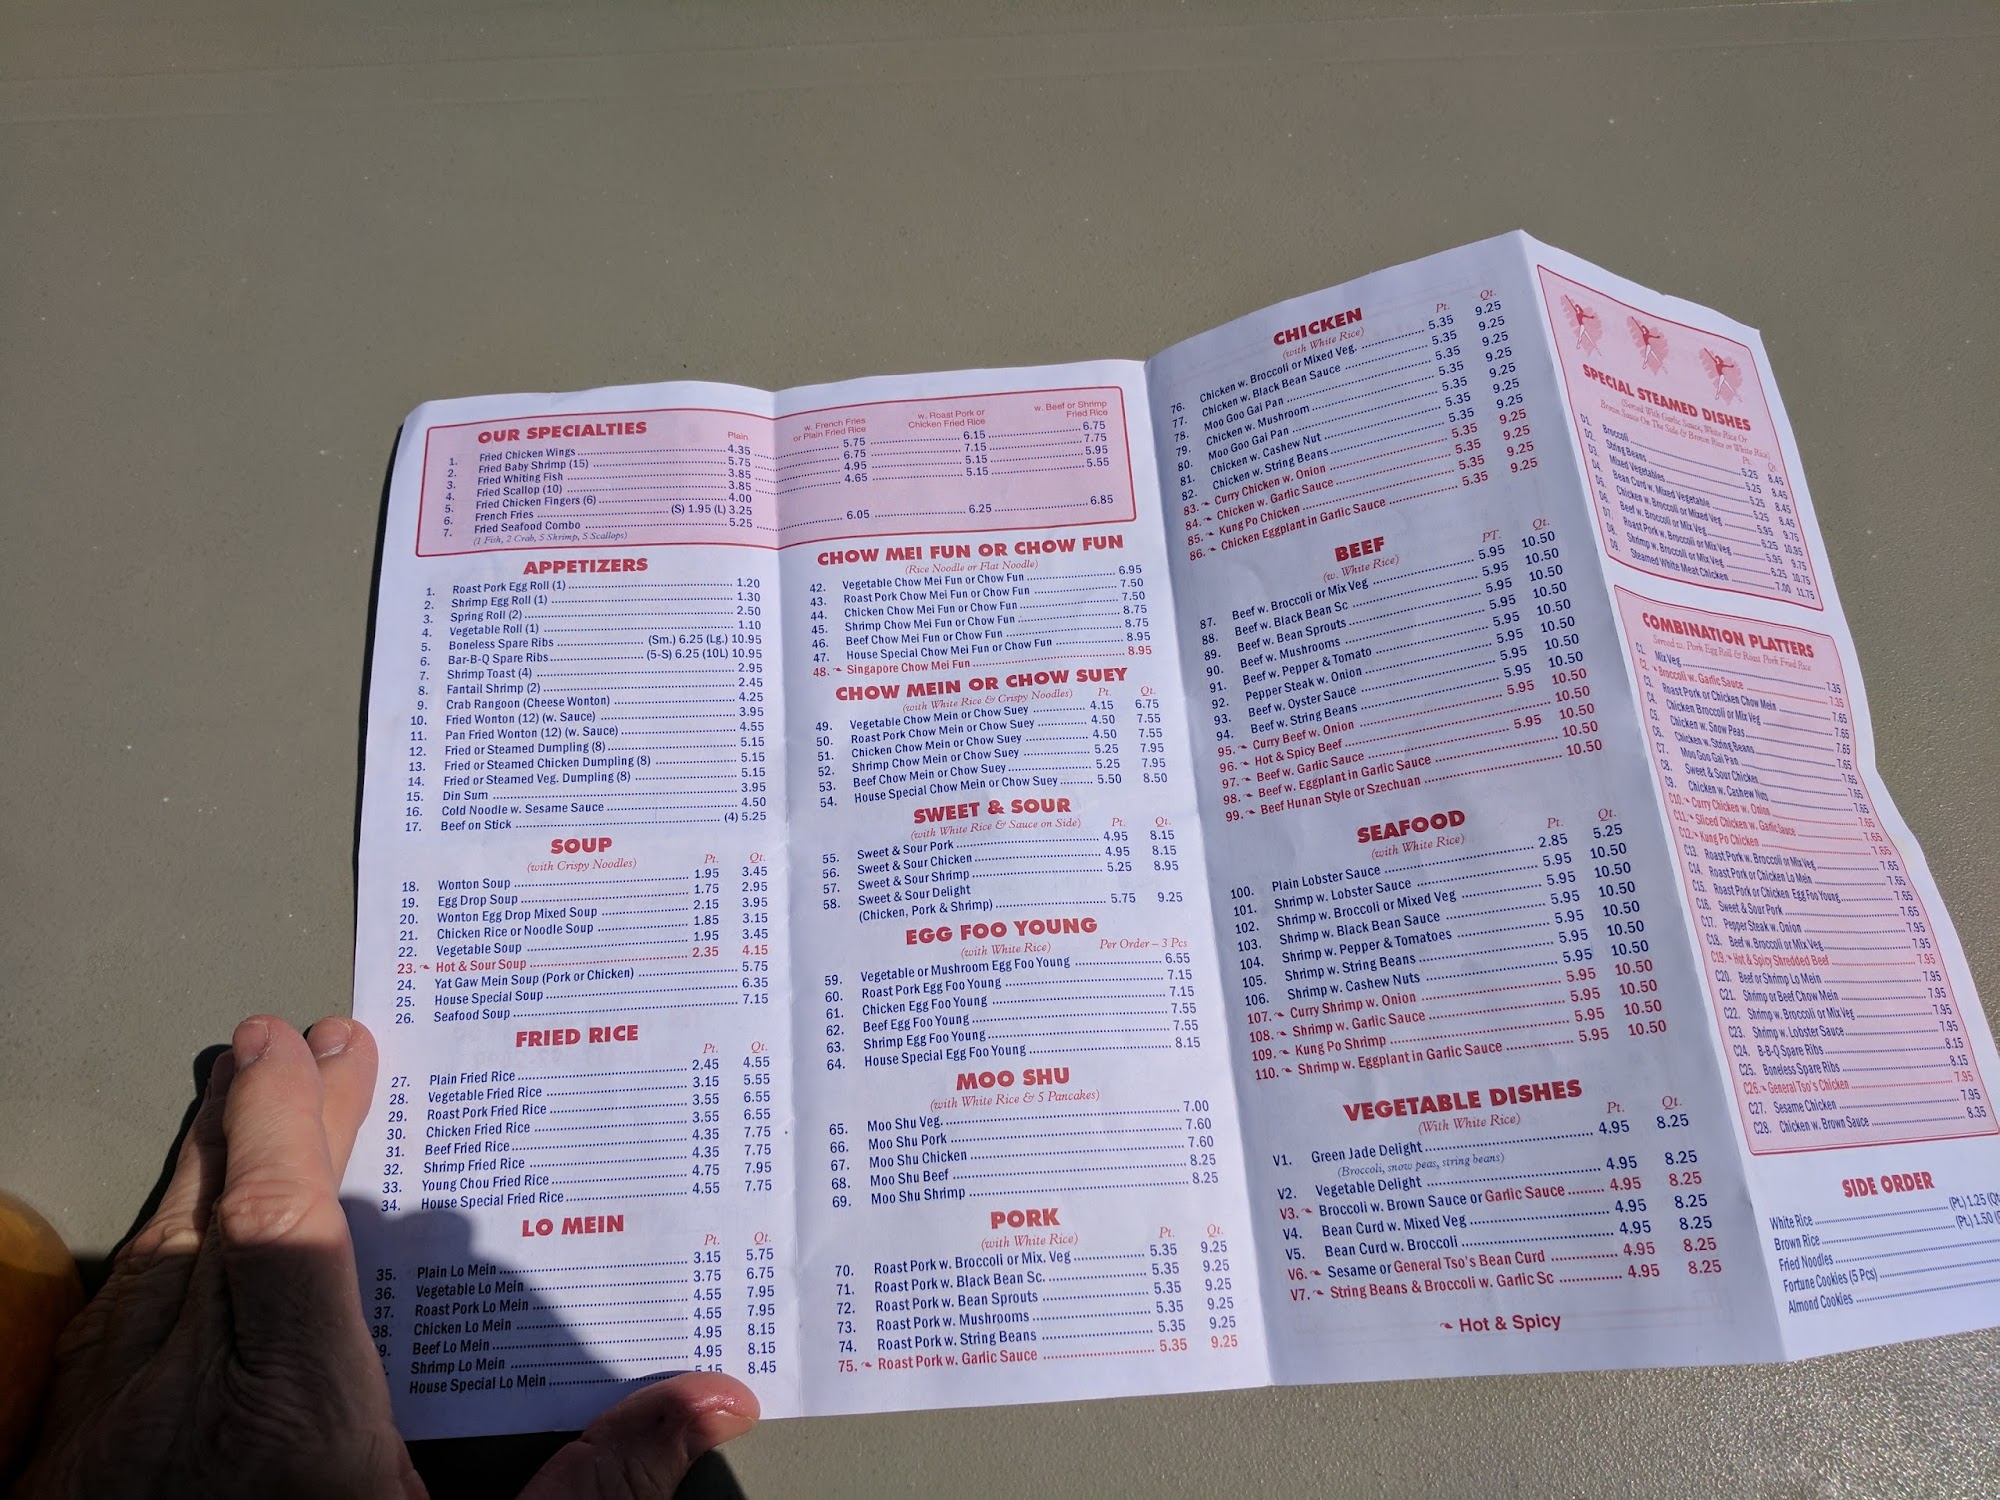 OUR SPECIALTIES
Plain
w. French Fries
or Plain Fried Rice
w. Roast Pork or
Chicken Fried Rice
w. Beef or Shrimp
Fried Rice
1. Fried Chicken Wings 4.35 5.75 6.15 6.75
2. Fried Baby Shrimp (15) 5.75 6.75 7.15 7.75
3. Fried Whiting Fish 3.85 4.95 5.15 5.95
4. Fried Scallop (10) 3.85 4.65 5.15 5.55
5. Fried Chicken Fingers (6) 4.00
6. French Fries (S) 1.95 (L) 3.25
7. Fried Seafood Combo 5.25 6.05 6.25 6.85
(1 Fish, 2 Crab, 5 Shrimp, 5 Scallops)
APPETIZERS
1. Roast Pork Egg Roll (1) 1.20
2. Shrimp Egg Roll (1) 1.30
3. Spring Roll (2) 2.50
4. Vegetable Roll (1) 1.10
5. Boneless Spare Ribs (Sm.) 6.25 (Lg.) 10.95
6. Bar-B-Q Spare Ribs (5-S) 6.25 (10L) 10.95
7. Shrimp Toast (4) 2.95
8. Fantail Shrimp (2) 2.45
9. Crab Rangoon (Cheese Wonton) 4.25
10. Fried Wonton (12) (w. Sauce) 3.95
11. Pan Fried Wonton (12) (w. Sauce) 4.55
12. Fried or Steamed Dumpling (8) 5.15
13. Fried or Steamed Chicken Dumpling (8) 5.15
14. Fried or Steamed Veg. Dumpling (8) 5.15
15. Din Sum 3.95
16. Cold Noodle w. Sesame Sauce 4.50
17. Beef on Stick (4) 5.25
SOUP
(with Crispy Noodles) Pt. Qt.
18. Wonton Soup 1.95 3.45
19. Egg Drop Soup 1.75 2.95
20. Wonton Egg Drop Mixed Soup 2.15 3.95
21. Chicken Rice or Noodle Soup 1.85 3.15
22. Vegetable Soup 1.95 3.45
23. Hot & Sour Soup 2.35 4.15
24. Yat Gaw Mein Soup (Pork or Chicken) 5.75
25. House Special Soup 6.35
26. Seafood Soup 7.15
FRIED RICE
Pt. Qt.
27. Plain Fried Rice 2.45 4.55
28. Vegetable Fried Rice 3.15 5.55
29. Roast Pork Fried Rice 3.55 6.55
30. Chicken Fried Rice 3.55 6.55
31. Beef Fried Rice 4.35 7.75
32. Shrimp Fried Rice 4.35 7.75
33. Young Chou Fried Rice 4.75 7.95
34. House Special Fried Rice 4.55 7.75
LO MEIN
Pt. Qt.
35. Plain Lo Mein 3.15 5.75
36. Vegetable Lo Mein 3.75 6.75
37. Roast Pork Lo Mein 4.55 7.95
38. Chicken Lo Mein 4.55 7.95
9. Beef Lo Mein 4.95 8.15
Shrimp Lo Mein 4.95 8.15
House Special Lo Mein 5.15 8.45
CHOW MEI FUN OR CHOW FUN
(Rice Noodle or Flat Noodle)
42. Vegetable Chow Mei Fun or Chow Fun 6.95
43. Roast Pork Chow Mei Fun or Chow Fun 7.50
44. Chicken Chow Mei Fun or Chow Fun 7.50
45. Shrimp Chow Mei Fun or Chow Fun 8.75
46. Beef Chow Mei Fun or Chow Fun 8.75
47. House Special Chow Mei Fun or Chow Fun 8.95
48. Singapore Chow Mei Fun 8.95
CHOW MEIN OR CHOW SUEY
(with White Rice & Crispy Noodles) Pt. Qt.
49. Vegetable Chow Mein or Chow Suey 4.15 6.75
50. Roast Pork Chow Mein or Chow Suey 4.50 7.55
51. Chicken Chow Mein or Chow Suey 4.50 7.55
52. Shrimp Chow Mein or Chow Suey 5.25 7.95
53. Beef Chow Mein or Chow Suey 5.25 7.95
54. House Special Chow Mein or Chow Suey 5.50 8.50
SWEET & SOUR
(with White Rice & Sauce on Side) Pt. Qt.
55. Sweet & Sour Pork 4.95 8.15
56. Sweet & Sour Chicken 4.95 8.15
57. Sweet & Sour Shrimp 5.25 8.95
58. Sweet & Sour Delight
(Chicken, Pork & Shrimp) 5.75 9.25
EGG FOO YOUNG
(with White Rice) Per Order – 3 Pcs
59. Vegetable or Mushroom Egg Foo Young 6.55
60. Roast Pork Egg Foo Young 7.15
61. Chicken Egg Foo Young 7.15
62. Beef Egg Foo Young 7.55
63. Shrimp Egg Foo Young 7.55
64. House Special Egg Foo Young 8.15
MOO SHU
(with White Rice & 5 Pancakes)
65. Moo Shu Veg. 7.00
66. Moo Shu Pork 7.60
67. Moo Shu Chicken 7.60
68. Moo Shu Beef 8.25
69. Moo Shu Shrimp 8.25
PORK
(with White Rice) Pt. Qt.
70. Roast Pork w. Broccoli or Mix. Veg 5.35 9.25
71. Roast Pork w. Black Bean Sc. 5.35 9.25
72. Roast Pork w. Bean Sprouts 5.35 9.25
73. Roast Pork w. Mushrooms 5.35 9.25
74. Roast Pork w. String Beans 5.35 9.25
75. Roast Pork w. Garlic Sauce 5.35 9.25
CHICKEN
(with White Rice) Pt. Qt.
76. Chicken w. Broccoli or Mixed Veg. 5.35 9.25
77. Chicken w. Black Bean Sauce 5.35 9.25
78. Moo Goo Gai Pan 5.35 9.25
79. Chicken w. Mushroom 5.35 9.25
80. Moo Goo Gai Pan 5.35 9.25
81. Chicken w. Cashew Nut 5.35 9.25
82. Chicken w. String Beans 5.35 9.25
83. Curry Chicken w. Onion 5.35 9.25
84. Chicken w. Garlic Sauce 5.35 9.25
85. Kung Po Chicken 5.35 9.25
86. Chicken Eggplant in Garlic Sauce 5.35 9.25
BEEF
(w. White Rice) PT. Qt.
87. Beef w. Broccoli or Mix Veg 5.95 10.50
88. Beef w. Black Bean Sc 5.95 10.50
89. Beef w. Bean Sprouts 5.95 10.50
90. Beef w. Mushrooms 5.95 10.50
91. Beef w. Pepper & Tomato 5.95 10.50
92. Pepper Steak w. Onion 5.95 10.50
93. Beef w. Oyster Sauce 5.95 10.50
94. Beef w. String Beans 5.95 10.50
95. Curry Beef w. Onion 5.95 10.50
96. Hot & Spicy Beef 10.50
97. Beef w. Garlic Sauce 5.95 10.50
98. Beef w. Eggplant in Garlic Sauce 10.50
99. Beef Hunan Style or Szechuan 10.50
SEAFOOD
(with White Rice) Pt. Qt.
100. Plain Lobster Sauce 2.85 5.25
101. Shrimp w. Lobster Sauce 5.95 10.50
102. Shrimp w. Broccoli or Mixed Veg 5.95 10.50
103. Shrimp w. Black Bean Sauce 5.95 10.50
104. Shrimp w. Pepper & Tomatoes 5.95 10.50
105. Shrimp w. String Beans 5.95 10.50
106. Shrimp w. Cashew Nuts 5.95 10.50
107. Curry Shrimp w. Onion 5.95 10.50
108. Shrimp w. Garlic Sauce 5.95 10.50
109. Kung Po Shrimp 5.95 10.50
110. Shrimp w. Eggplant in Garlic Sauce 5.95 10.50
VEGETABLE DISHES
(With White Rice) Pt. Qt.
V1. Green Jade Delight 4.95 8.25
(Broccoli, snow peas, string beans)
V2. Vegetable Delight 4.95 8.25
V3. Broccoli w. Brown Sauce or Garlic Sauce 4.95 8.25
V4. Bean Curd w. Mixed Veg 4.95 8.25
V5. Bean Curd w. Broccoli 4.95 8.25
V6. Sesame or General Tso's Bean Curd 4.95 8.25
V7. String Beans & Broccoli w. Garlic Sc 4.95 8.25
Hot & Spicy
SPECIAL STEAMED DISHES
(Served With Garlic Sauce, White Rice Or
Brown Sauce On The Side & Brown Rice or White Rice)
Pt. Qt.
D1. Broccoli 5.25 8.45
D2. String Beans 5.25 8.45
D3. Mixed Vegetables 5.25 8.45
D4. Bean Curd w. Mixed Vegetable 5.25 8.45
D5. Chicken w. Broccoli or Mixed Veg 5.95 9.75
D6. Beef w. Broccoli or Mix Veg 6.25 10.95
D7. Roast Pork w. Broccoli or Mix Veg 5.95 9.75
D8. Shrimp w. Broccoli or Mix Veg 6.25 10.75
D9. Steamed White Meat Chicken 7.00 11.75
COMBINATION PLATTERS
Served w. Pork Egg Roll & Roast Pork Fried Rice
C1. Mix Veg 7.35
C2. Broccoli w. Garlic Sauce 7.35
C3. Roast Pork or Chicken Chow Mein 7.65
C4. Chicken Broccoli or Mix Veg 7.65
C5. Chicken w. Snow Peas 7.65
C6. Chicken w. String Beans 7.65
C7. Moo Goo Gai Pan 7.65
C8. Sweet & Sour Chicken 7.65
C9. Chicken w. Cashew Nuts 7.65
C10. Curry Chicken w. Onion 7.65
C11. Sliced Chicken w. Garlic Sauce 7.65
C12. Kung Po Chicken 7.65
C13. Roast Pork w. Broccoli or Mix Veg 7.65
C14. Roast Pork or Chicken Lo Mein 7.65
C15. Roast Pork or Chicken Egg Foo Young 7.65
C16. Sweet & Sour Pork 7.65
C17. Pepper Steak w. Onion 7.95
C18. Beef w. Broccoli or Mix Veg 7.95
C19. Hot & Spicy Shredded Beef 7.95
C20. Beef or Shrimp Lo Mein 7.95
C21. Shrimp or Beef Chow Mein 7.95
C22. Shrimp w. Broccoli or Mix Veg 7.95
C23. Shrimp w. Lobster Sauce 7.95
C24. B-B-Q Spare Ribs 8.15
C25. Boneless Spare Ribs 8.15
C26. General Tso's Chicken 7.95
C27. Sesame Chicken 7.95
C28. Chicken w. Brown Sauce 8.35
SIDE ORDER
White Rice (Pt.) 1.25 (Qt
Brown Rice (Pt.) 1.50
Fried Noodles
Fortune Cookies (5 Pcs)
Almond Cookies